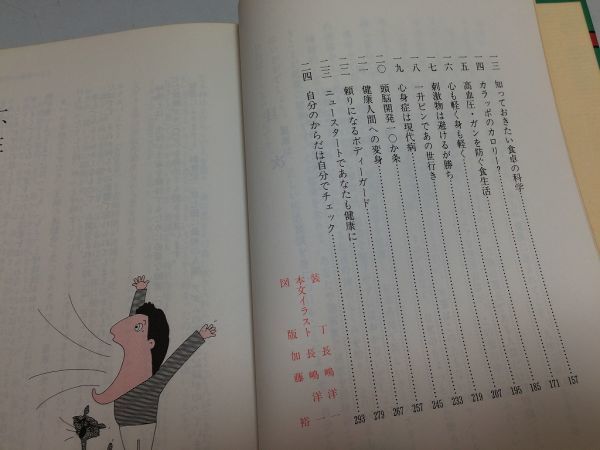 一三　知っておきたい食卓の科学……157
一四　カラッポのカロリー?……171
一五　高血圧・ガンを防ぐ食生活……185
一六　心も軽く身も軽く……195
一七　刺激物は避けるが勝ち……207
一八　一升ビンであの世行き……219
一九　心身症は現代病……233
二〇　頭脳開発一〇か条……245
二一　健康人間への変身……257
二二　頼りになるボディーガード……267
二三　ニュースタートであなたも健康に……279
二四　自分のからだは自分でチェック……293
装丁　長嶋洋一
本文イラスト　長嶋洋一
図版　加藤裕